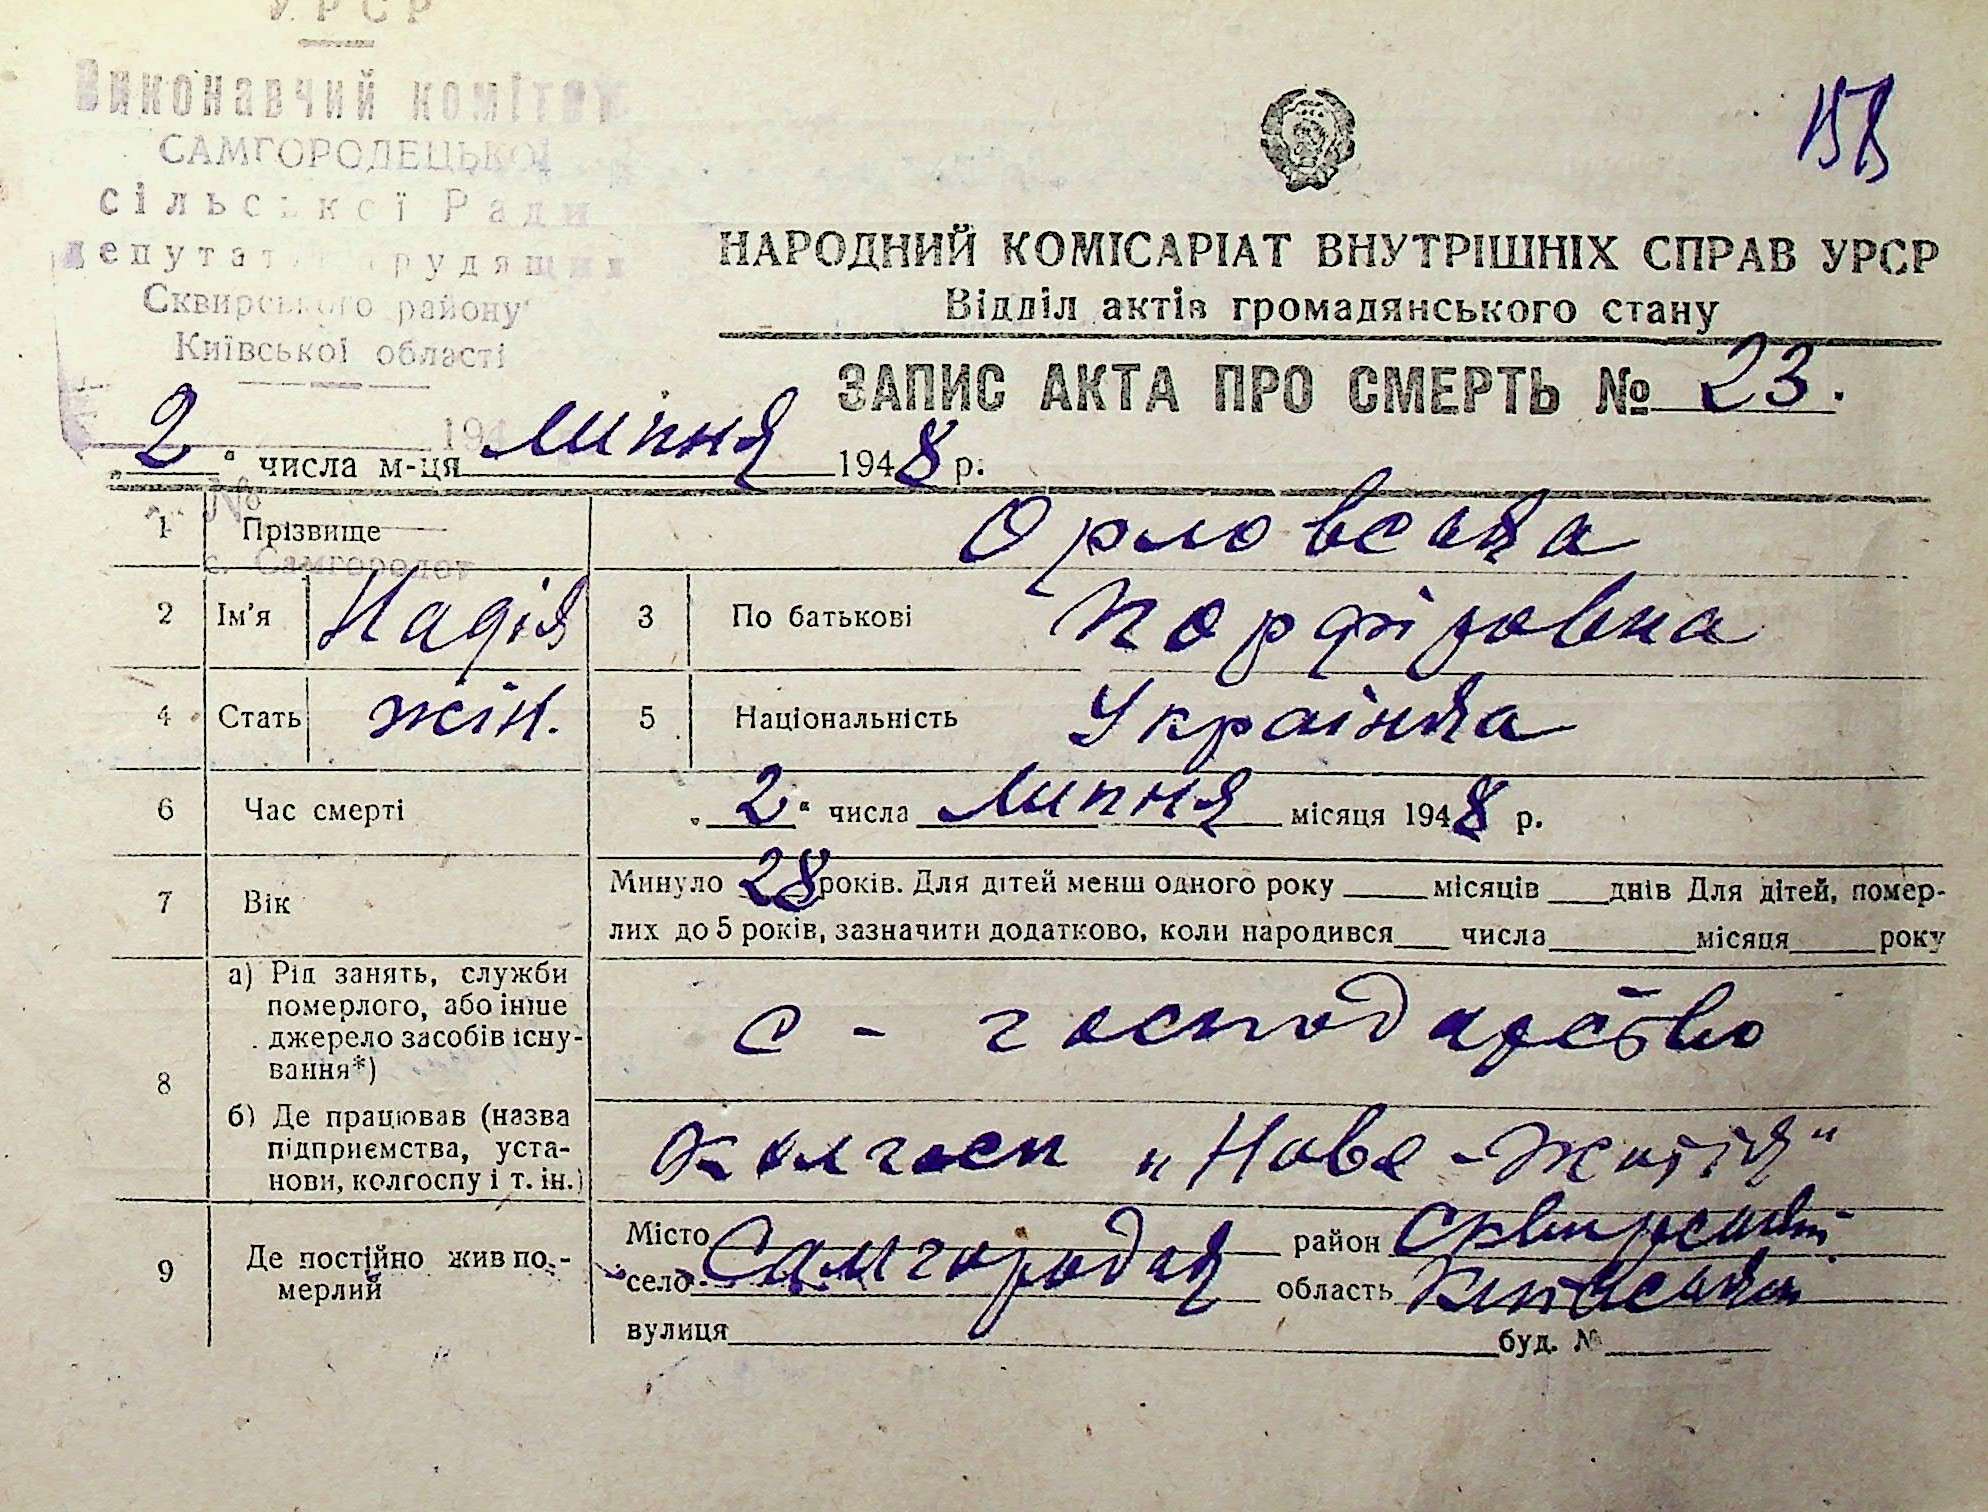 УРСР
Виконавчий комітет
САМГОРОДЕЦЬКОЇ
сільської Ради
депутатів трудящих
Сквирського району
Київської області
194
№
с. Самгородок
НАРОДНИЙ КОМІСАРІАТ ВНУТРІШНІХ СПРАВ УРСР
Відділ актів громадянського стану
ЗАПИС АКТА ПРО СМЕРТЬ № 23.
„2“ числа м-ця липня 1948 р.
1 Прізвище Орловська
2 Ім’я Надія 3 По батькові Порфіровна
4 Стать жін. 5 Національність Українка
6 Час смерті „2“ числа липня місяця 1948 р.
7 Вік Минуло 28 років. Для дітей менш одного року місяців днів Для дітей, помер-
лих до 5 років, зазначити додатково, коли народився числа місяця року
8 а) Рід занять, служби
померлого, або інше
джерело засобів існу-
вання*) с-господарство
б) Де працював (назва
підприємства, уста-
нови, колгоспу і т. ін.) колгосп „Нове-життя“
9 Де постійно жив по-
мерлий
Місто район Сквирський
село Самгородок область Київський
вулиця буд. №